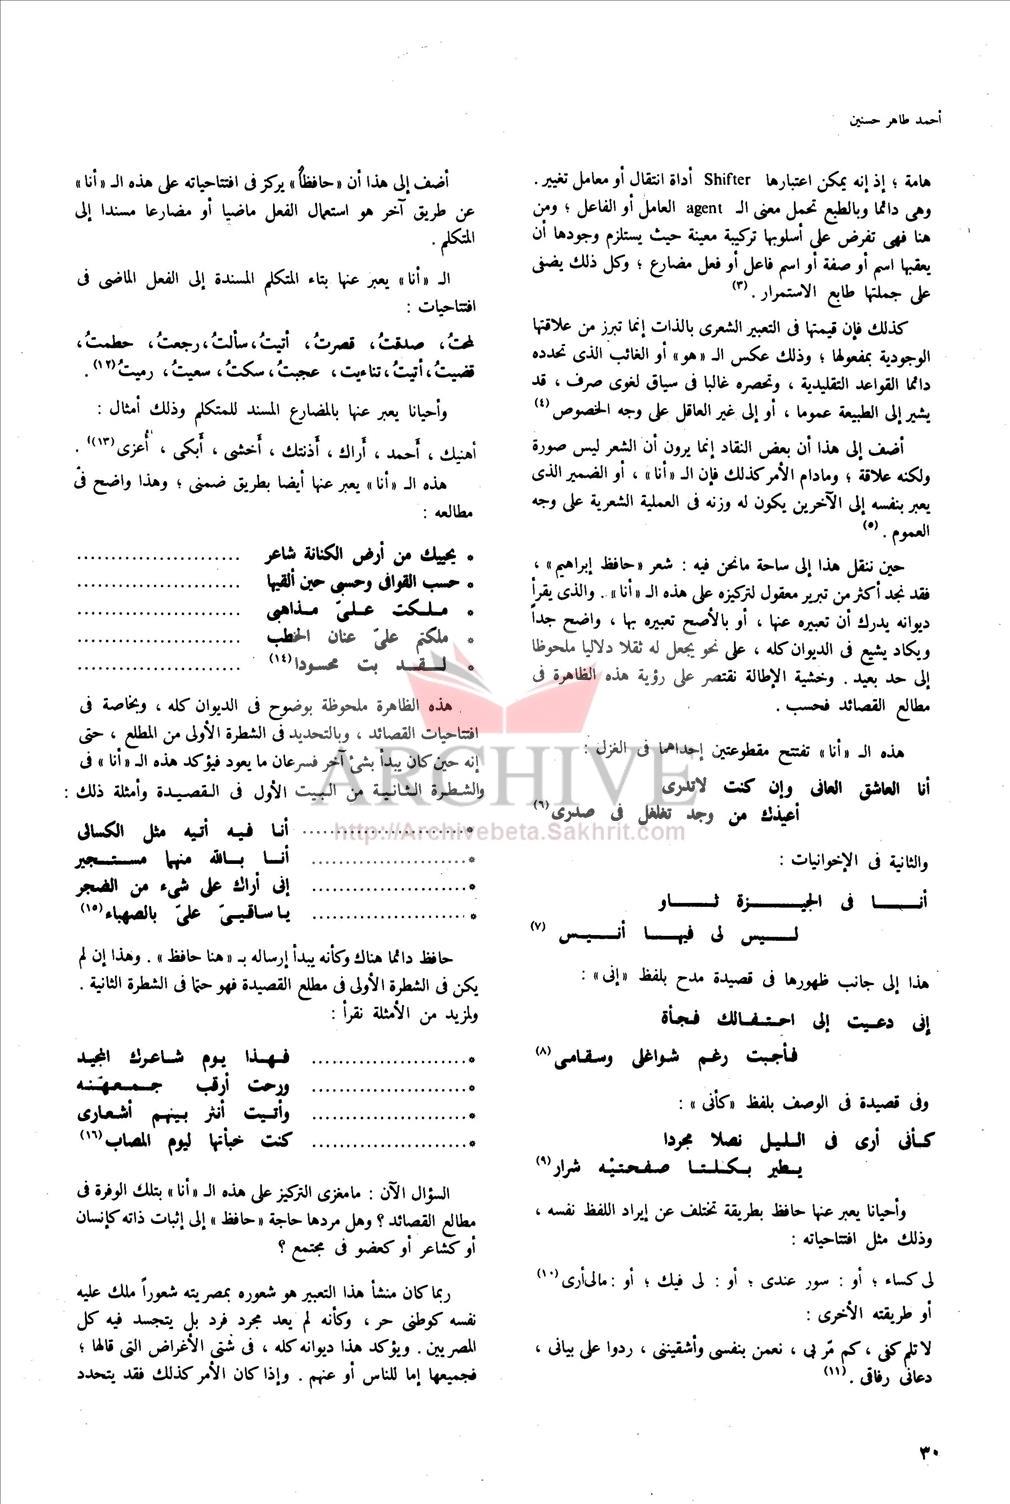 أحمد طاهر حسنين
هامة ؛ إذ إنه يمكن اعتبارها Shifter أداة انتقال أو معامل تغيير .
وهى دائما وبالطبع تحمل معنى الـ agent العامل أو الفاعل ؛ ومن
هنا فهى تفرض على أسلوبها تركيبة معينة حيث يستلزم وجودها أن
يعقبها اسم أو صفة أو اسم فاعل أو فعل مضارع ؛ وكل ذلك يضفى
على جملتها طابع الاستمرار . (٣)
كذلك فإن قيمتها فى التعبير الشعرى بالذات إنما تبرز من علاقتها
الوجودية بمفعولها ؛ وذلك عكس الـ «هو» أو الغائب الذى تحدده
دائما القواعد التقليدية ، وتحصره غالبا فى سياق لغوى صرف ، قد
يشير إلى الطبيعة عموما ، أو إلى غير العاقل على وجه الخصوص (٤)
أضف إلى هذا أن بعض النقاد إنما يرون أن الشعر ليس صورة
ولكنه علاقة ؛ ومادام الأمر كذلك فإن الـ «أنا» ، أو الضمير الذى
يعبر بنفسه إلى الآخرين يكون له وزنه فى العملية الشعرية على وجه
العموم . (٥)
حين ننقل هذا إلى ساحة مانحن فيه : شعر «حافظ إبراهيم» ،
فقد نجد أكثر من تبرير معقول لتركيزه على هذه الـ «أنا» . والذى يقرأ
ديوانه يدرك أن تعبيره عنها ، أو بالأصح تعبيره بها ، واضح جداً
ويكاد يشيع فى الديوان كله ، على نحو يجعل له ثقلا دلاليا ملحوظا
إلى حد بعيد . وخشية الإطالة نقتصر على رؤية هذه الظاهرة فى
مطالع القصائد فحسب .
هذه الـ «أنا» تفتتح مقطوعتين إحداهما فى الغزل :
أنا العاشق العانى وإن كنت لاتدرى
أعيذك من وجد تغلغل فى صدرى (٦)
والثانية فى الإخوانيات :
أنـــا فى الجيـــزة ثـــاو
لـــيس لى فيهـــا أنـــيس (٧)
هذا إلى جانب ظهورها فى قصيدة مدح بلفظ «إنى» :
إنى دعـيت إلى احـتـفـالك فـجأة
فـأجبت رغـم شـواغلى وسـقامى (٨)
وفى قصيدة فى الوصف بلفظ «كأنى» :
كـأنى أرى فى الـليـل نصلا مجردا
يـطير بـكـلـتـا صفـحـتيْه شرار (٩)
وأحيانا يعبر عنها حافظ بطريقة تختلف عن إيراد اللفظ نفسه ،
وذلك مثل افتتاحياته :
لى كساء ؛ أو : سور عندى ؛ أو : لى فيك ؛ أو : مالى أرى (١٠)
أو طريقته الأخرى :
لا تلم كفى ، كم مّر بى ، نعمن بنفسى وأشقيننى ، ردوا على بيانى ،
دعانى رفاقى . (١١)
أضف إلى هذا أن «حافظاً» يركز فى افتتاحياته على هذه الـ «أنا»
عن طريق آخر هو استعمال الفعل ماضيا أو مضارعا مسندا إلى
المتكلم .
الـ «أنا» يعبر عنها بتاء المتكلم المسندة إلى الفعل الماضى فى
افتتاحيات :
لمحتُ، صدقتُ، قصرتُ، أتيتُ، سألتُ، رجعتُ، حطمتُ،
قضيتُ، أتيتُ، تناءيت ، عجبتُ، سكتُ، سعيتُ، رميتُ (١٢) .
وأحيانا يعبر عنها بالمضارع المسند للمتكلم وذلك أمثال :
أهنيك ، أحمد ، أراك ، أذنتك ، أخشى ، أبكى ، أعزى (١٣) .
هذه الـ «أنا» يعبر عنها أيضا بطريق ضمنى ؛ وهذا واضح فى
مطالعه :
* يحييك من أرض الكنانة شاعر ........................
* حسب القوافى وحسبى حين ألقيها ........................
* مـلـكت عـلـىّ مـذاهبى ........................
* ملكتم علىّ عنان الخطب ........................
* لـقـد بت محسودا (١٤) ........................
هذه الظاهرة ملحوظة بوضوح فى الديوان كله ، وبخاصة فى
افتتاحيات القصائد ، وبالتحديد فى الشطرة الأولى من المطلع ، حتى
إنه حين كان يبدأ بشئ آخر فسرعان ما يعود فيؤكد هذه الـ «أنا» فى
والشطرة الثانية من البيت الأول فى القصيدة وأمثلة ذلك :
*........................ أنـا فـيـه أتيه مثل الكسالى
*........................ أنـا بـالله منهما مستـجـير
*........................ إنى أراك على شىء من الضجر
*........................ يـا ساقـيـىّ علىّ بالصهباء (١٥)
حافظ دائما هناك وكأنه يبدأ إرساله بـ «هنا حافظ» . وهذا إن لم
يكن فى الشطرة الأولى فى مطلع القصيدة فهو حتما فى الشطرة الثانية .
ولمزيد من الأمثلة نقرأ :
*........................ فـهـذا يـوم شاعـرك المجيد
*........................ ورحت أرقب جـمـعهنـه
*........................ وأتـيت أنثر بـينهم أشـعارى
*........................ كنت خبأتها ليوم المصاب (١٦)
السؤال الآن : مامغزى التركيز على هذه الـ «أنا» بتلك الوفرة فى
مطالع القصائد ؟ وهل مردها حاجة «حافظ» إلى إثبات ذاته كإنسان
أو كشاعر أو كعضو فى مجتمع ؟
ربما كان منشأ هذا التعبير هو شعوره بمصريته شعوراً ملك عليه
نفسه كوطنى حر ، وكأنه لم يعد مجرد فرد بل يتجسد فيه كل
المصريين . ويؤكد هذا ديوانه كله ، فى شتى الأغراض التى قالها ؛
فجميعها إما للناس أو عنهم . وإذا كان الأمر كذلك فقد يتحدد
ARCHIVE
http://Archivebeta.Sakhrit.com
٣٠